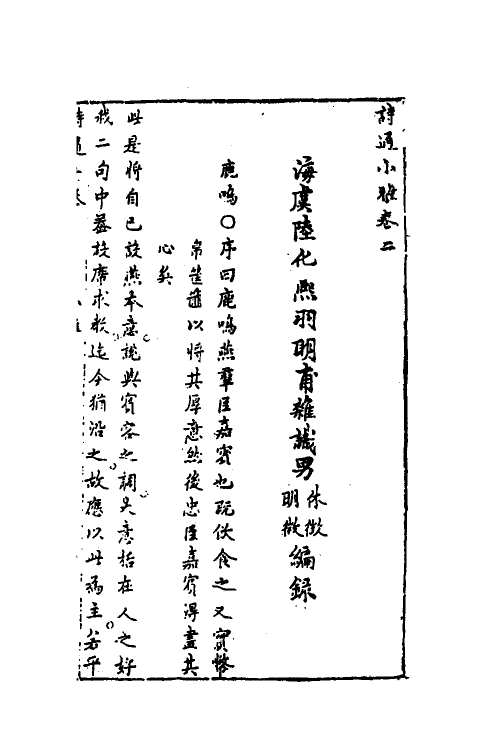 詩通小雅卷二
海虞陸化熙羽明甫雜議男休徵明徵編錄
鹿鳴○序曰鹿鳴燕羣臣嘉賓也既飲食之又實幣
帛筐篚以將其厚意然後忠臣嘉賓得盡其
心矣
此是將自已設燕本意說與賓客之詞大意括在人之好
我二句中蓋設席求教迄今猶沿之故應以此為主若平